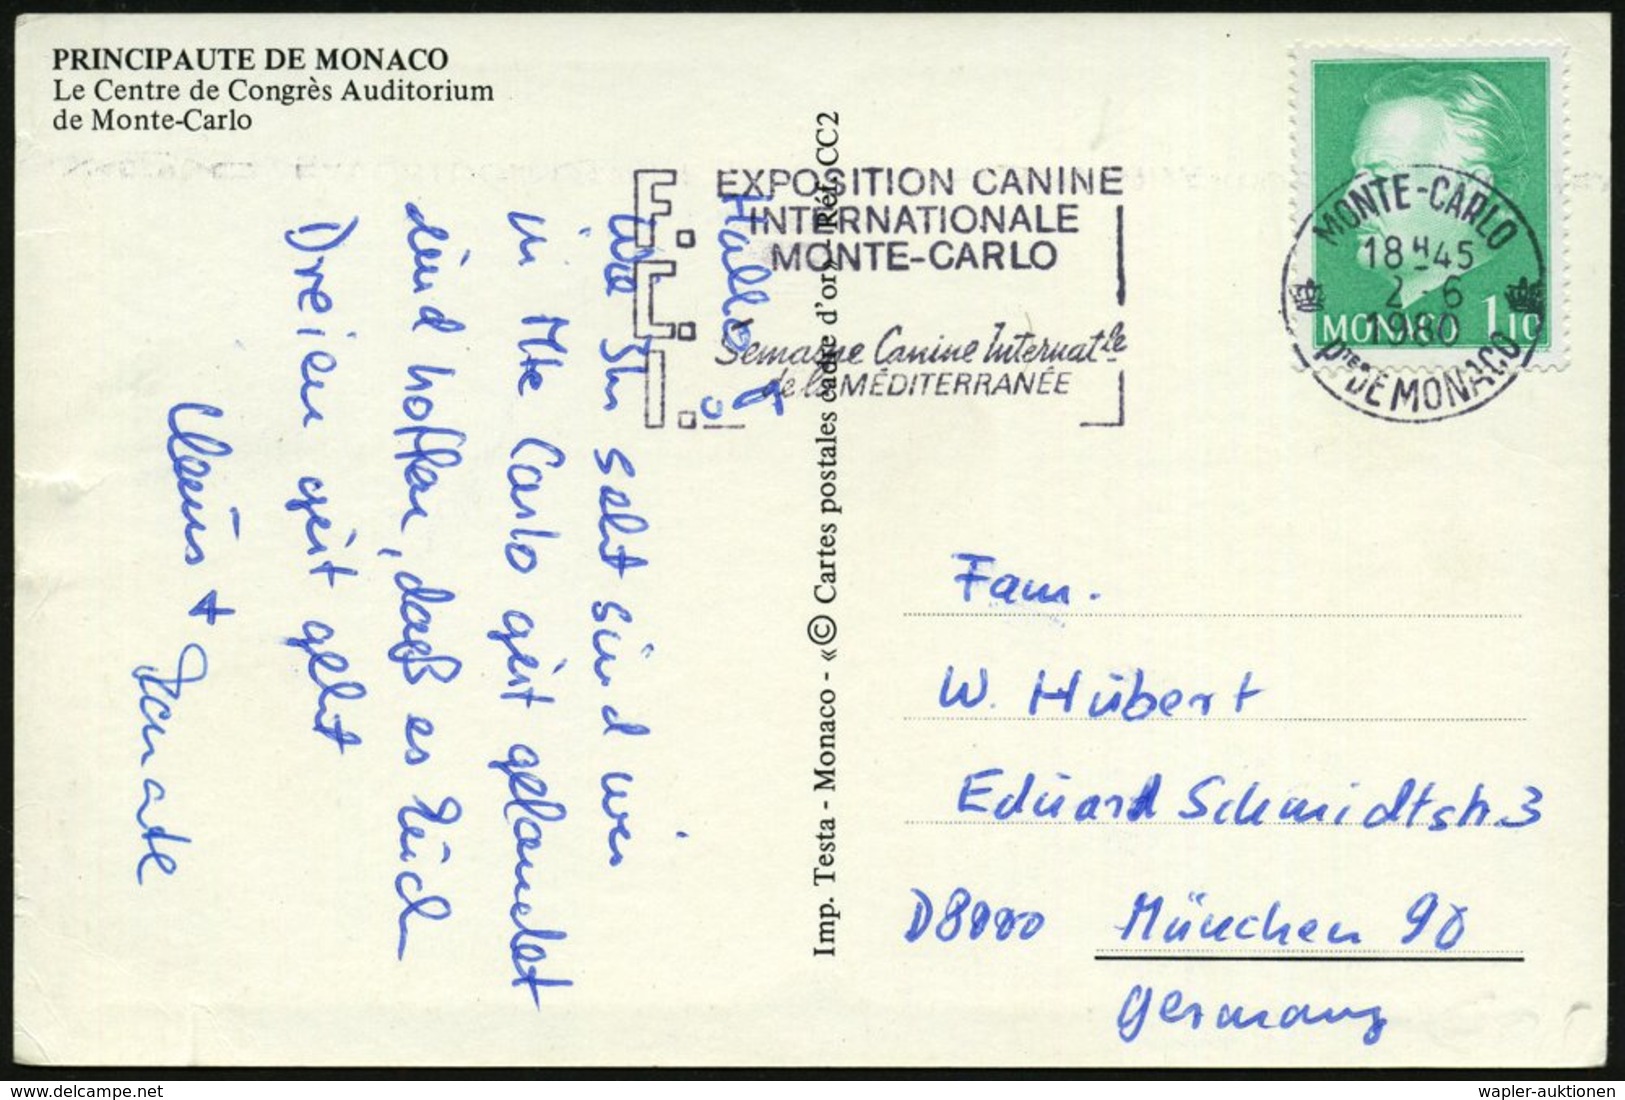 PRINCIPAUTE DE MONACO
Le Centre de Congrès Auditorium
de Monte-Carlo
F.
C.
I.
EXPOSITION CANINE
INTERNATIONALE
MONTE-CARLO
Semaine Canine Internatle
de la MÉDITERRANÉE
MONTE-CARLO
18H45
2 6
1980
Pté DE MONACO
MONACO 1,10
Imp. Testa - Monaco - «© Cartes postales cadre d'or» - Réf. CC2
Hallo
Wie Ihr seht sind wir
in Mte Carlo gut gelandet
und hoffen, daß es Euch
Dreien gut geht
Claus +
Renate
Fam.
W. Hubert
Eduard Schmidtstr. 3
D8000 München 90
Germany
wapler-auktionen